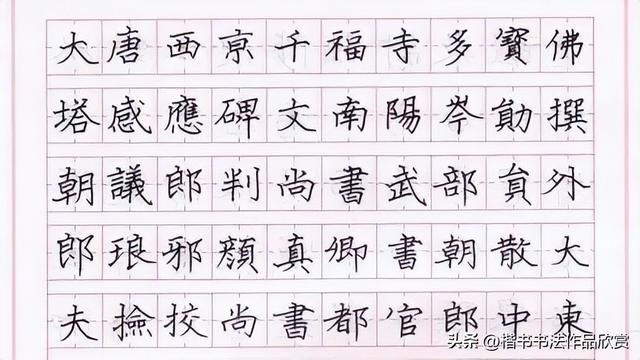 大唐西京千福寺多寳佛
塔感應碑文南陽岑勛撰
朝議郎判尚書武部貟外
郎琅邪顔真卿書朝散大
夫撿挍尚書都官郎中東
头条 @楷书书法作品欣赏